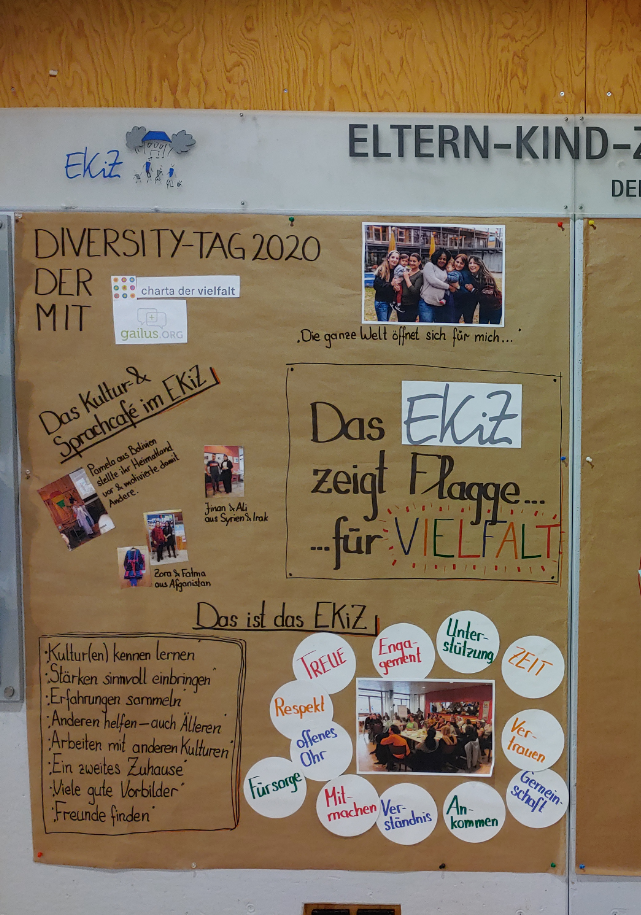 EKiZ
ELTERN-KIND-Z
DE
DIVERSITY-TAG 2020
DER
charta der vielfalt
MIT
gailus.ORG
„Die ganze Welt öffnet sich für mich..."
Das Kultur-&
Sprachcafé im EKiZ
Pamela aus Bolivien
stellte ihr Heimatland
vor & motivierte damit
Andere.
Jinan & Ali
aus Syrien & Irak
Zora & Fatma
aus Afganistan
Das EKiZ
zeigt Flagge...
...für VIELFALT
Das ist das EKiZ
"Kultur(en) kennen lernen"
"Stärken sinnvoll einbringen"
"Erfahrungen sammeln"
"Anderen helfen – auch Älteren"
"Arbeiten mit anderen Kulturen"
"Ein zweites Zuhause"
"Viele gute Vorbilder"
"Freunde finden"
TREUE
Enga-
gement
Unter-
stützung
ZEIT
Respekt
offenes
Ohr
Ver-
trauen
Fürsorge
Mit-
machen
Ver-
ständnis
An-
kommen
Gemein-
schaft